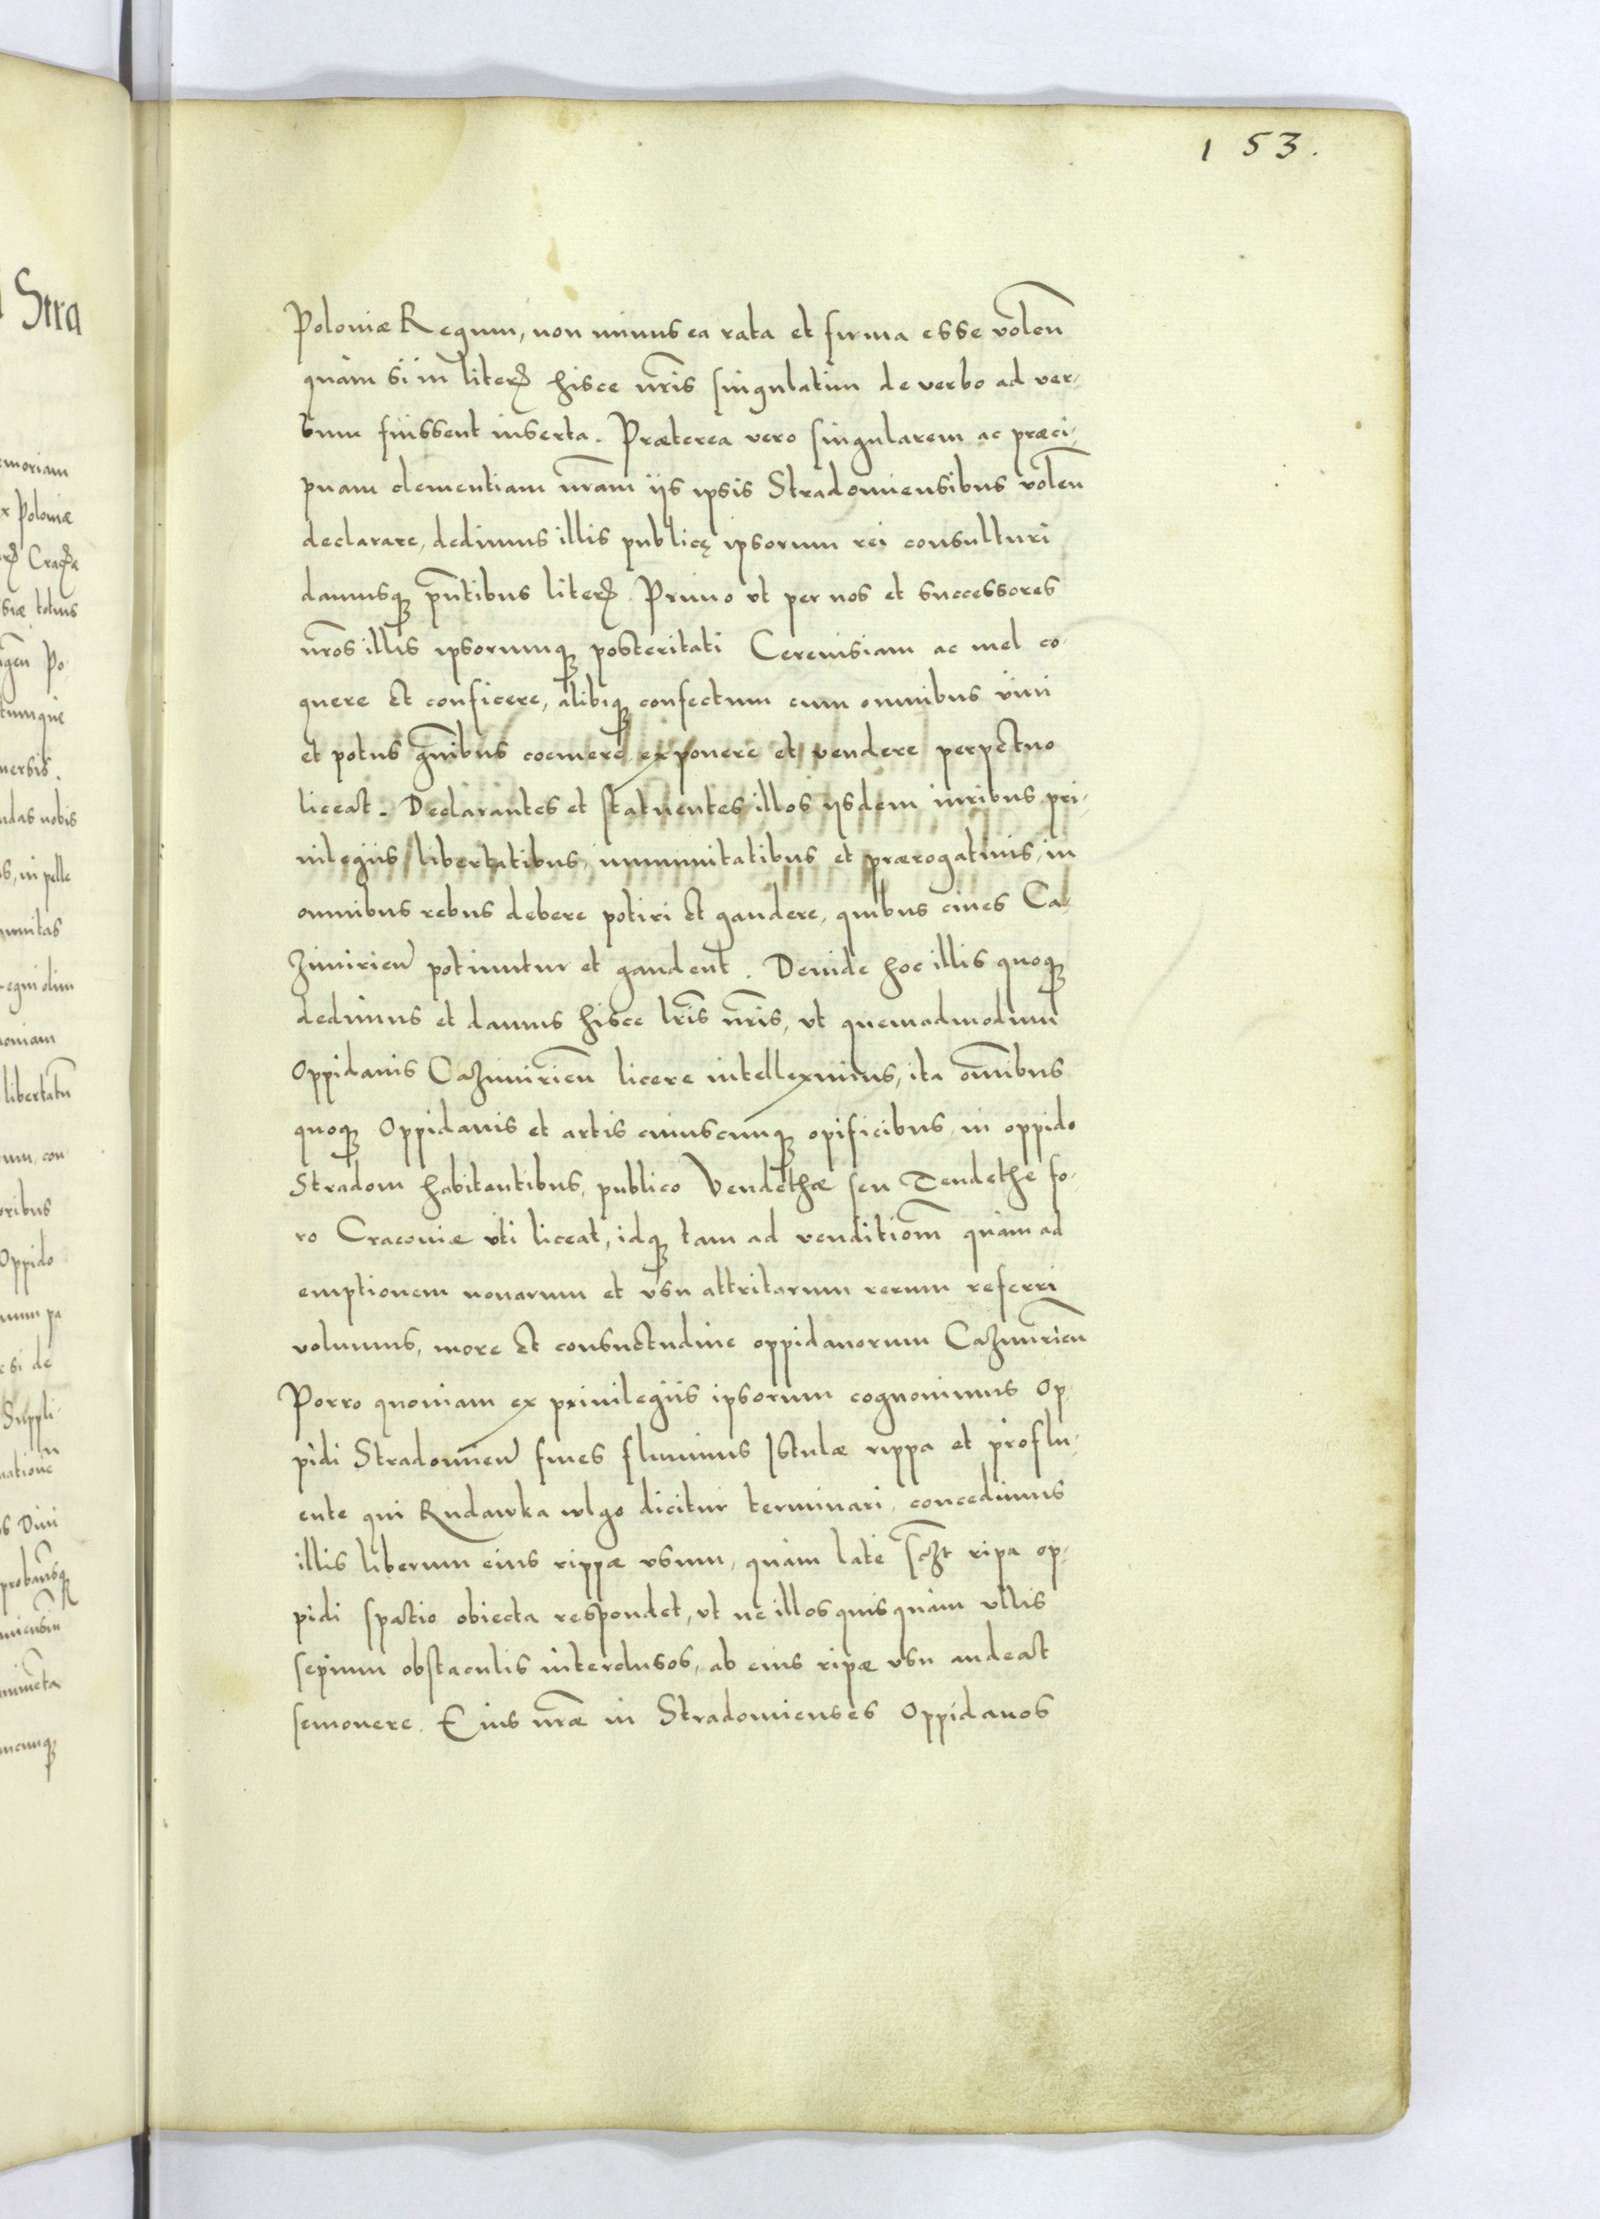 153.
Poloniæ Regum, non minus ea rata et firma esse volen̄
quàm si in literꝭ hisce nr̄is singulatim de verbo ad ver-
bum fuissent inserta. Præterea vero singularem ac præci-
puam clementiam nr̄am iis ipsis Stradomiensibus volen̄
declarare, dedimus illis publicę ipsorum rei consulturi
damusqꝫ pn̄tibus literꝭ. Primo vt per nos et successores
nr̄os illis ipsorumqꝫ posteritati Cereuisiam ac mel co-
quere et conficere, alibiqꝫ confectum cum omnibus vini
et potus gn̄ibus coemere exponere et vendere perpetuo
liceat. Declarantes et statuentes illos iisdem iuribus pri-
uilegiis libertatibus, immunitatibus et prærogatiuis, in
omnibus rebus debere potiri et gaudere, quibus ciues Ca-
zimirien̄ potiuntur et gaudent. Deinde hoc illis quoqꝫ
dedimus et damus hisce lr̄is nr̄is, vt quemadmodum
Oppidanis Cazimirien̄ licere intelleximus, ita om̄ibus
quoqꝫ Oppidanis et artis cuiuscunqꝫ opificibus in oppido
Stradom habitantibus, publico Vendethæ seu Tendethe fo-
ro Cracoviæ vti liceat, idqꝫ tam ad venditiom̄ quàm ad
emptionem nouarum et vsu attritarum rerum referri
volumus, more et consuetudine oppidanorum Cazimirien̄
Porro quoniam ex priuilegiis ipsorum cognouimus Op-
pidi Stradomien̄ fines fluminis Istulæ rippa et proflu-
ente qui Rudawka vulgo dicitur terminari, concedimus
illis liberum eius rippæ vsum, quàm late sczt ripa op-
pidi spatio obiecta respondet, vt ne illos quisquàm vllis
sepium obstaculis interclusos, ab eius ripæ vsu audeat
semouere. Eius nr̄æ in Stradomienses Oppidanos